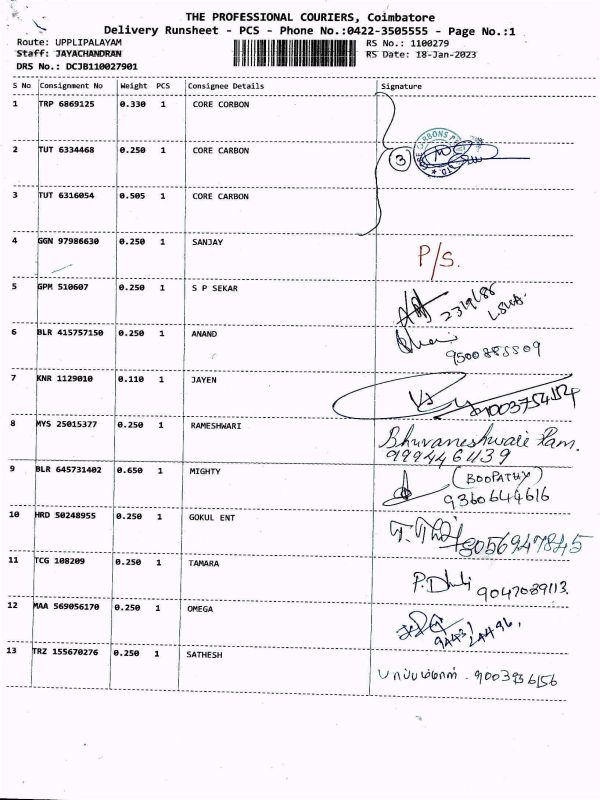 THE PROFESSIONAL COURIERS, Coimbatore
Delivery Runsheet - PCS - Phone No.:0422-3505555 - Page No.:1
Route: UPPLIPALAYAM RS No.: 1100279
Staff: JAYACHANDRAN RS Date: 18-Jan-2023
DRS No.: DCJB110027901
S No Consignment No Weight PCS Consignee Details Signature
1 TRP 6869125 0.330 1 CORE CORBON
2 TUT 6334468 0.250 1 CORE CARBON 3
3 TUT 6316054 0.505 1 CORE CARBON
4 GGN 97986630 0.250 1 SANJAY P/S.
5 GPM 510607 0.250 1 S P SEKAR
6 BLR 415757150 0.250 1 ANAND
9500385509
7 KNR 1129010 0.110 1 JAYEN
8 MYS 25015377 0.250 1 RAMESHWARI Bhuvaneshwari Ram.
9994461139
9 BLR 645731402 0.650 1 MIGHTY (BOOPATHY)
9360644616
10 HRD 50248955 0.250 1 GOKUL ENT 8056947845
11 TCG 108209 0.250 1 TAMARA 9047089113.
12 MAA 569056170 0.250 1 OMEGA
13 TRZ 155670276 0.250 1 SATHESH
9003936156